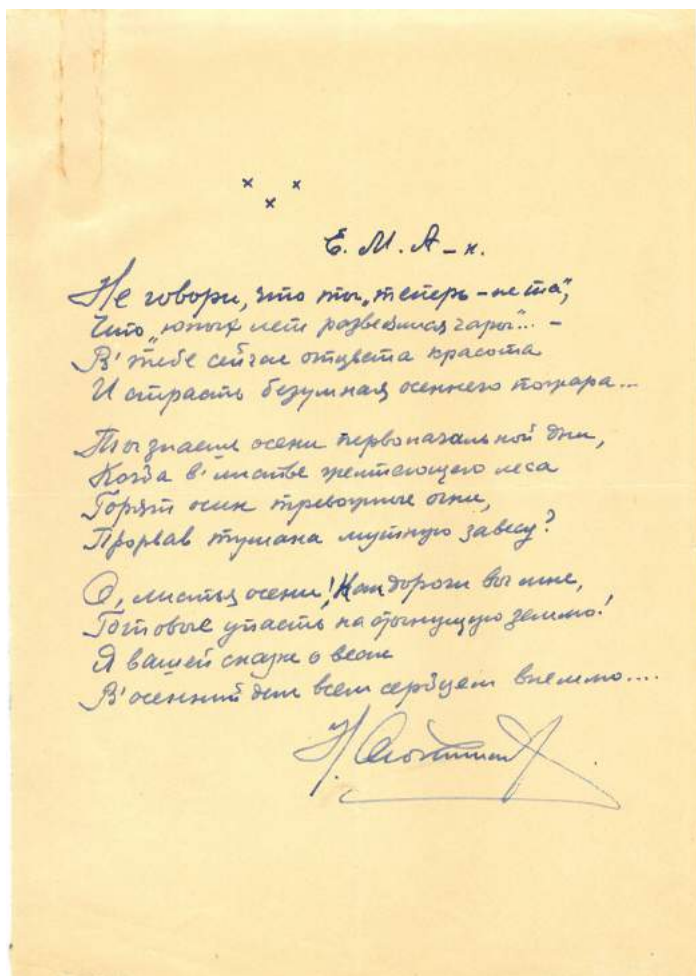 × × ×
Е. М. А – н.
Не говори, что ты „теперь – не та",
Что „юных лет развеялись чары"... –
В' тебе сейчас отцвета красота
И страсть безумная осеннего пожара...
Ты знаешь осени первоначальной дни,
Когда в' листве желтеющего леса
Горят осин тревожные огни,
Прорвав тумана мутную завесу?
О, листья осени! Как дороги вы мне,
Готовые упасть на стынущую землю!
Я вашей сказке о весне
В' осенний день всем сердцем внемлю....
Н.